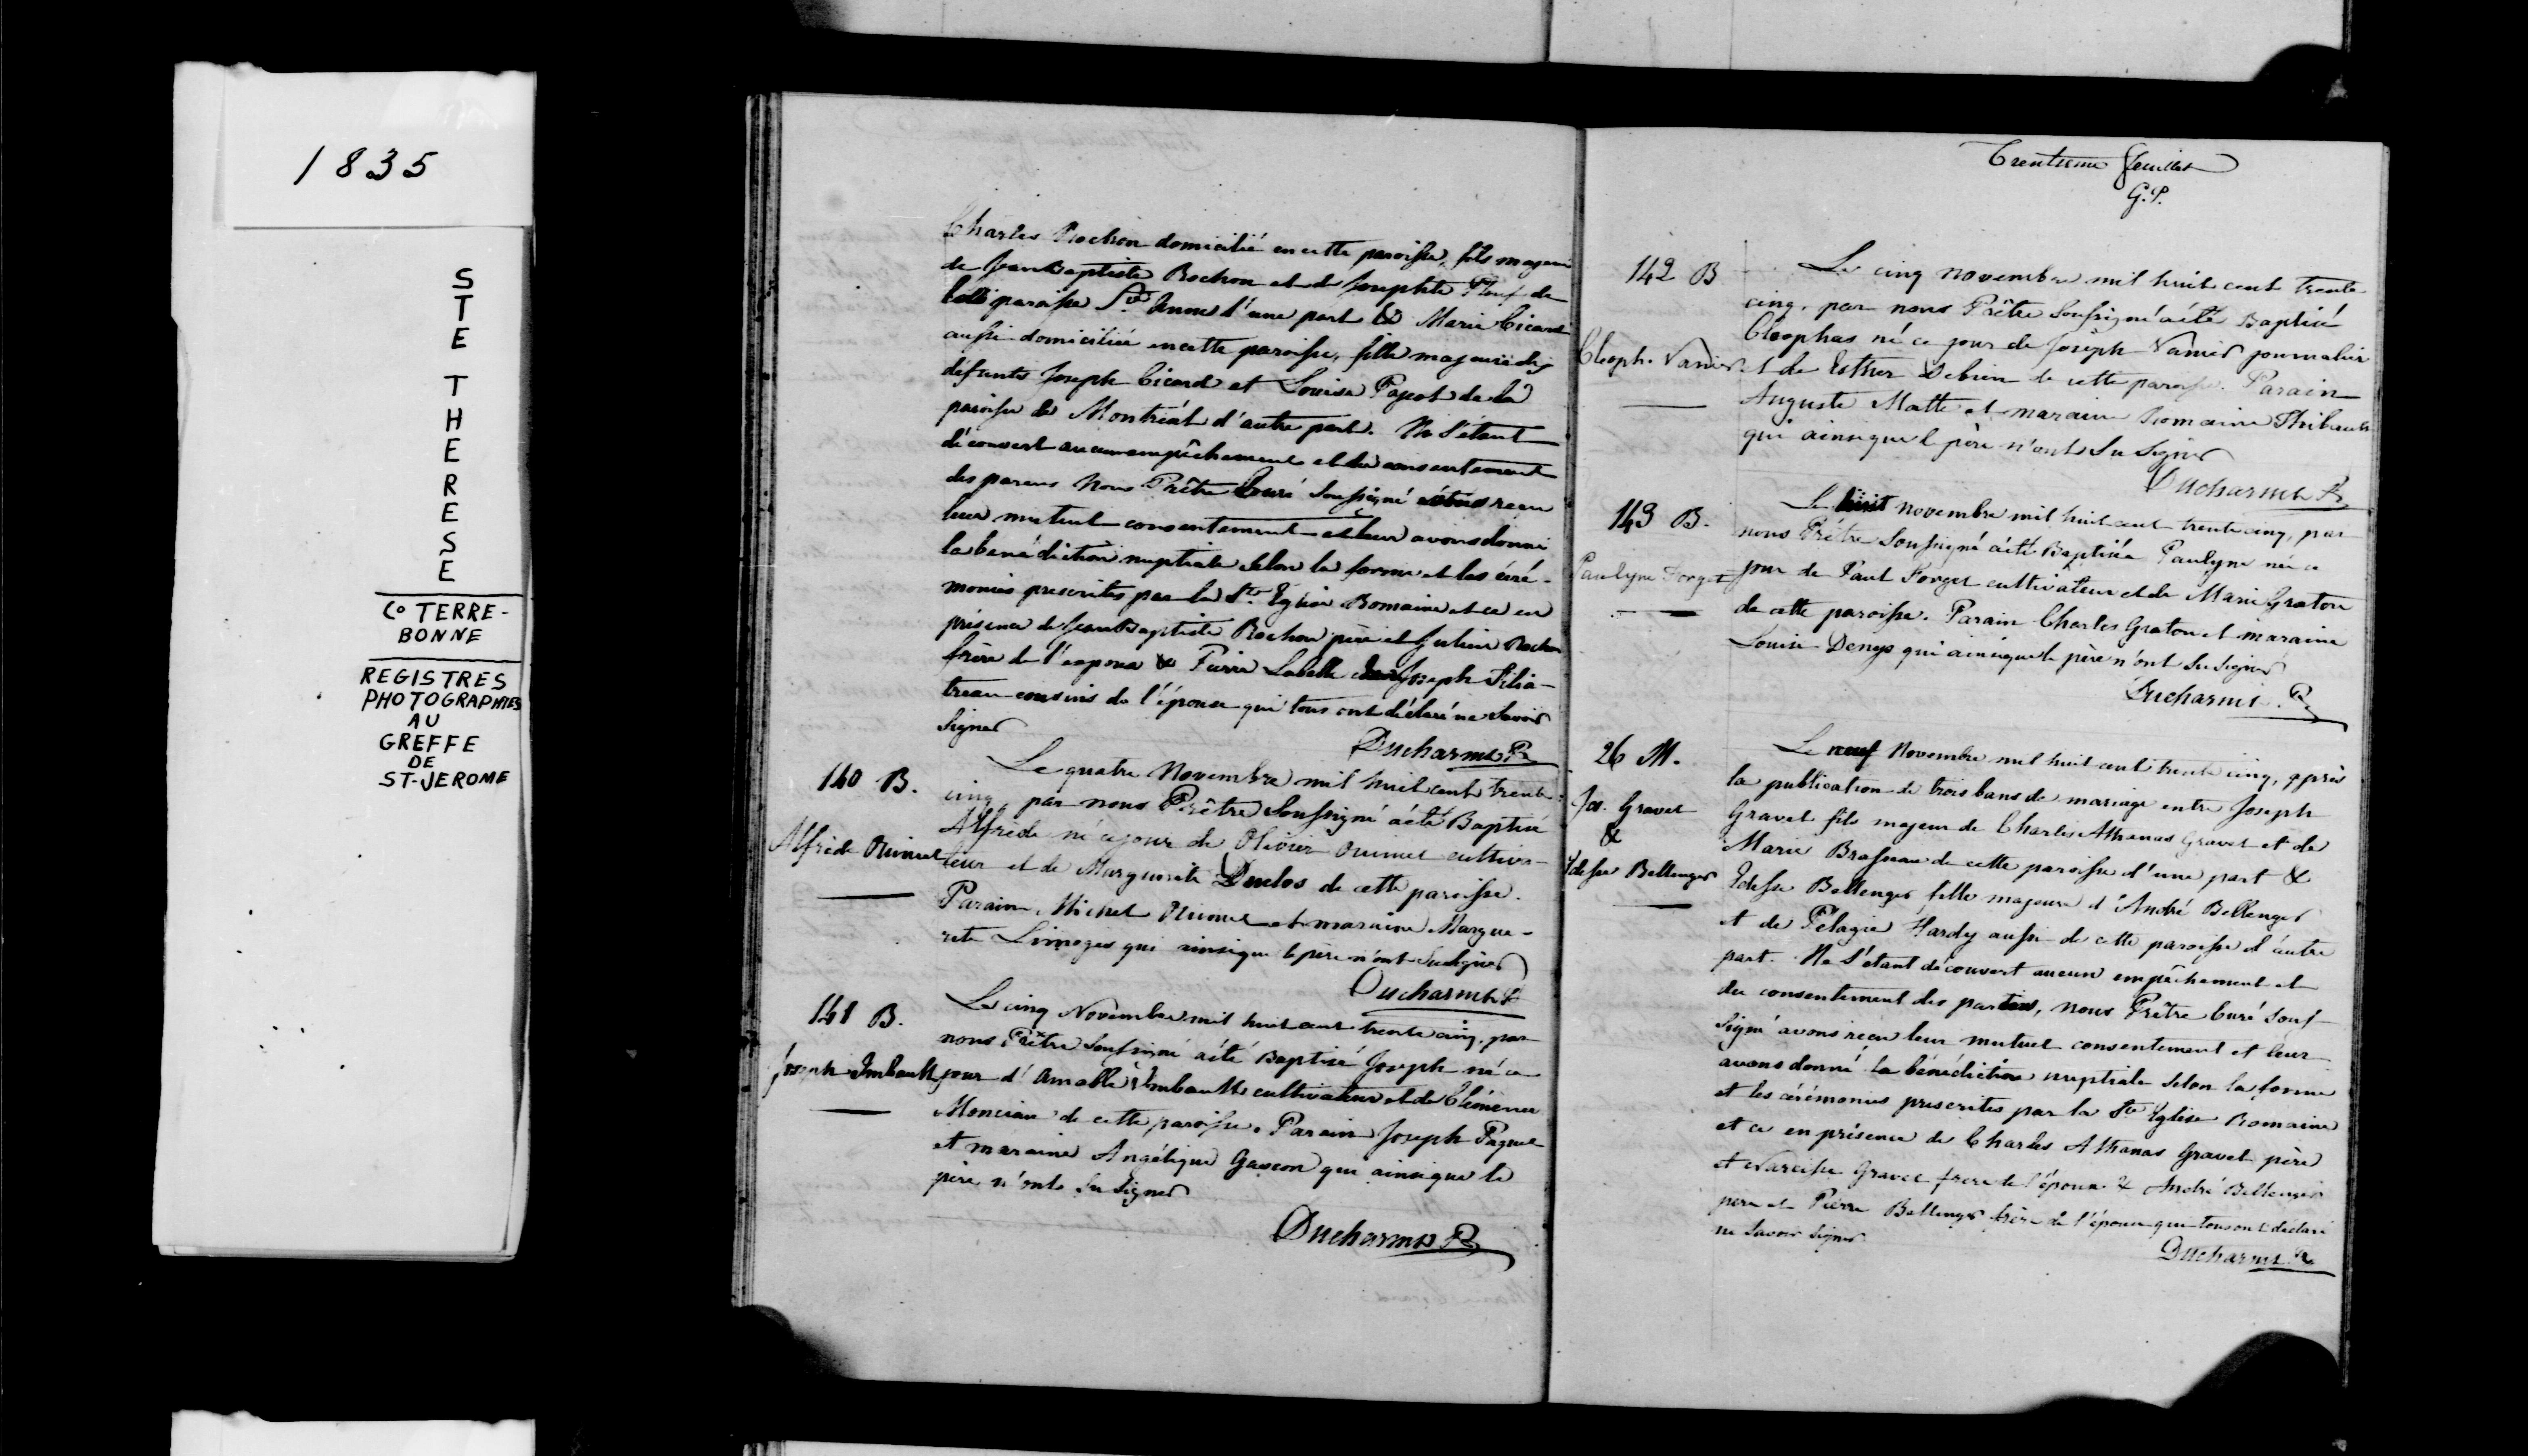 1835
STE THERESE
Co TERRE-
BONNE
REGISTRES
PHOTOGRAPHIES
AU
GREFFE
DE
ST-JEROME
Charles Rochon domicilié en cette paroisse, fils majeur
de Jean Baptiste Rochon et de Josephte de
paroisse Ste Anne d'une part & Marie Cicard
aussi domiciliée en cette paroisse, fille majeure des
défunts Joseph Cicard et Louise Pageot de la
paroisse de Montréal d'autre part. Ne s'étant
découvert aucun empêchement et du consentement
des parens Nous Prêtre Curé Soussigné avons reçu
leur mutuel consentement et leur avons donné
la bénédiction nuptiale selon la forme et les céré-
monies prescrites par la Ste Eglise Romaine et ce en
présence de Jean Baptiste Rochon père et Julien Rochon
frère de l'époux & Pierre Labelle Joseph Filia-
treau cousins de l'épouse qui tous ont déclaré ne savoir
signer
Ducharme Ptr
140 B.
Alfrède Ouimet
Le quatre Novembre mil huit cent trente
cinq, par nous Prêtre Soussigné a été Baptisé
Alfrède né ce jour de Olivier Ouimet cultiva-
teur et de Marguerite Duclos de cette paroisse.
Parain Michel Ouimet et maraine Margue-
rite Limoges qui ainsi que le père n'ont su signer
Ducharme Ptr
141 B.
Joseph Imbault
Le cinq Novembre mil huit cent trente cinq, par
nous Prêtre Soussigné a été Baptisé Joseph né ce
jour d'Amable Imbault cultivateur et de Clémence
Monciau de cette paroisse. Parain Joseph Paquet
et maraine Angélique Gascon qui ainsi que le
père n'ont su signer
Ducharme Ptr
Trentieme feuillet
G.P.
142 B
Cleoph. Vanier
Le cinq novembre mil huit cent trente
cinq, par nous Prêtre Soussigné a été Baptisé
Cléophas né ce jour de Joseph Vanier journalier
et de Esther Debien de cette paroisse. Parain
Auguste Matte et maraine Romaine Thibault
qui ainsi que le père n'ont su signer
Ducharme Ptr
143 B.
Paulyne Forget
Le huit novembre mil huit cent trente cinq, par
nous Prêtre Soussigné a été Baptisée Paulyne née ce
jour de Paul Forget cultivateur et de Marie Graton
de cette paroisse. Parain Charles Graton et maraine
Louise Denys qui ainsi que le père n'ont su signer
Ducharme Ptr
26 M.
Jos. Gravel
&
Edesse Bellenger
Le neuf Novembre mil huit cent trente cinq, après
la publication de trois bans de mariage entre Joseph
Gravel fils majeur de Charles Athanas Gravel et de
Marie Brasseau de cette paroisse d'une part &
Edesse Bellenger fille majeure d'André Bellenger
et de Pélagie Hardy aussi de cette paroisse d'autre
part. Ne s'étant découvert aucun empêchement et
du consentement des parties, nous Prêtre Curé Sous-
signé avons reçu leur mutuel consentement et leur
avons donné la bénédiction nuptiale selon la forme
et les cérémonies prescrites par la Ste Eglise Romaine
et ce en présence de Charles Athanas Gravel père
et Narcisse Gravel frère de l'époux & André Bellenger
père et Pierre Bellenger frère de l'épouse qui tous ont déclaré
ne savoir signer
Ducharme Ptr